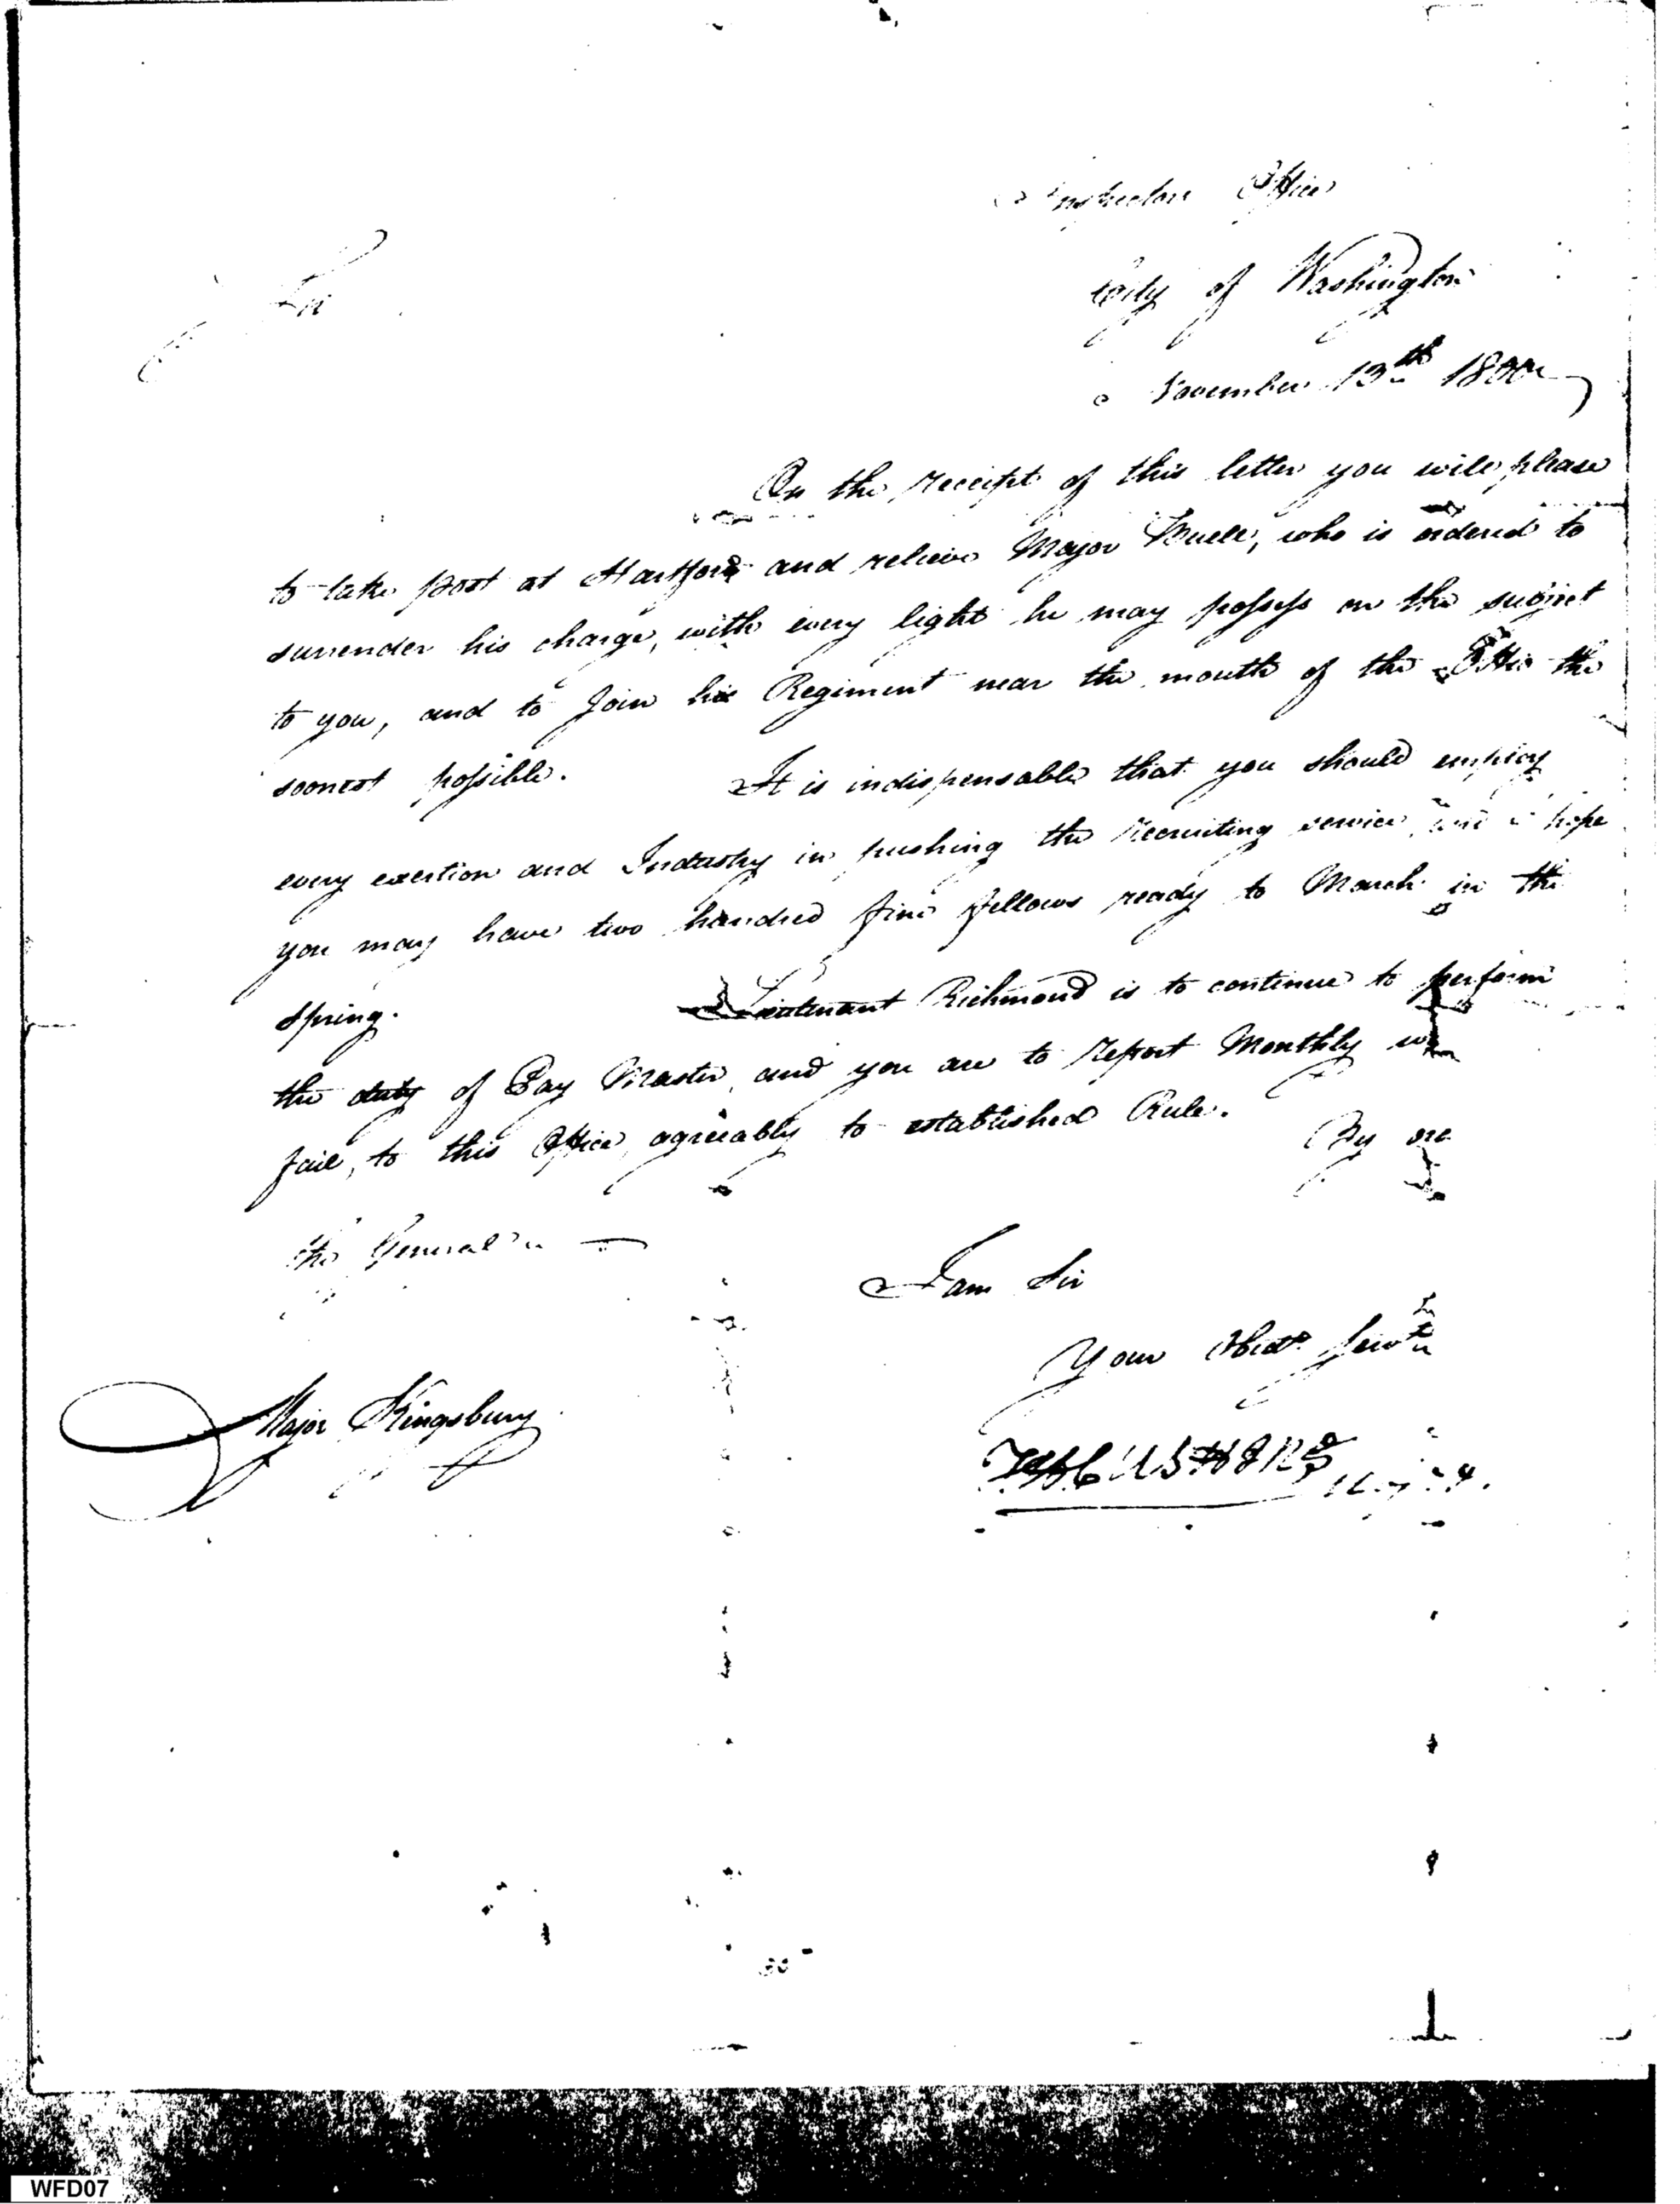 Inspectors Office
City of Washington
November 13th 1800
Sir
On the receipt of this letter you will please
to take post at Hartford and relieve Major Buell, who is ordered to
surrender his charge, with every light he may possess on the subject
to you, and to Join his Regiment near the mouth of the Ohio the
soonest possible. It is indispensable that you should employ
every exertion and Industry in pushing the recruiting service, and I hope
you may have two hundred fine fellows ready to March in the
Spring. Lieutenant Richmond is to continue to perform
the duty of Pay Master, and you are to report Monthly
fail, to this Office, agreeably to established Rule. By
the General
I am Sir
Your Obedt Servt
Major Kingsbury
T. H. CUSHING
WFD07